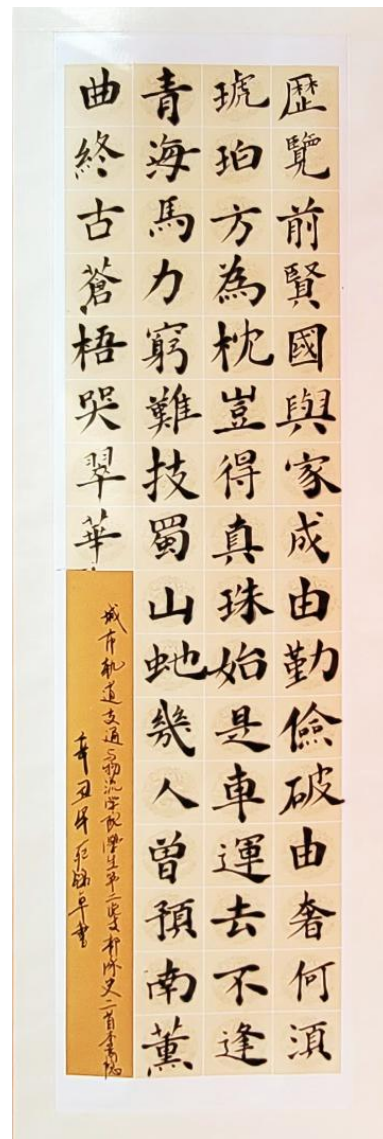 歷覽前賢國與家成由勤儉破由奢何須
琥珀方為枕豈得真珠始是車運去不逢
青海馬力窮難拔蜀山虵幾人曾預南薰
曲終古蒼梧哭翠華
城市軌道交通与物流学院學生第二党支部咏史二首李商隐
辛丑年書